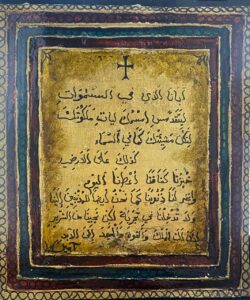 أبانا الذي في السموات
ليتقدس اسمك ليأت ملكوتك
لتكن مشيئتك كما في السماء
كذلك على الأرض
خبزنا كفافنا أعطنا اليوم
واغفر لنا ذنوبنا كما نحن أيضا للمذنبين إلينا
ولا تدخلنا في تجربة لكن نجينا من الشرير
لأن لك الملك والقوة والمجد إلى الأبد
آمين